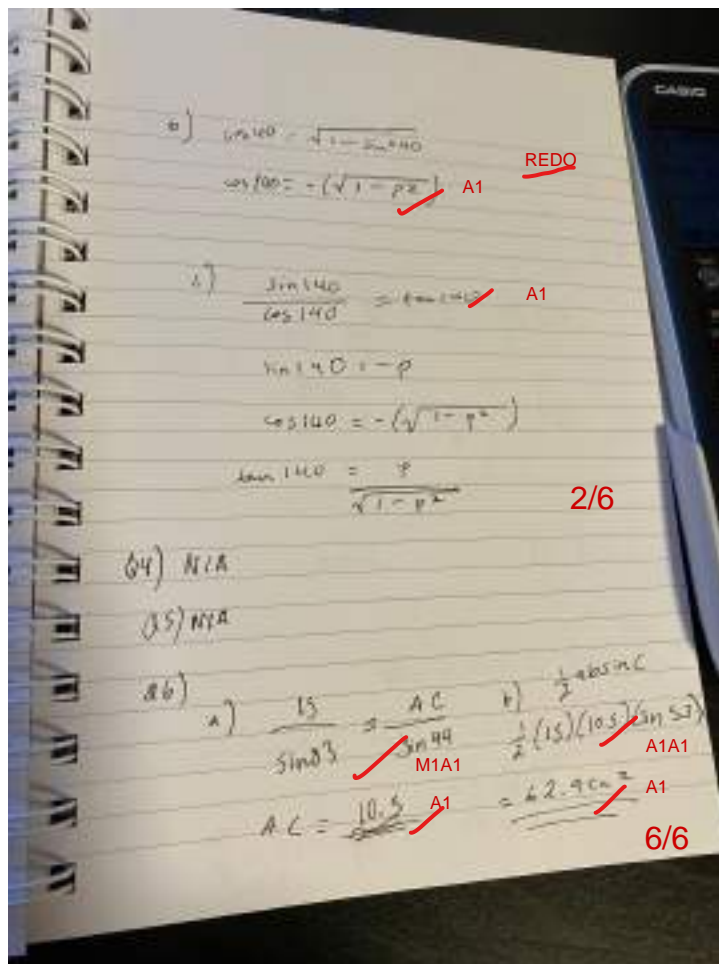 CASIO
b) cos140 = √1 - sin²40
REDO
cos140 = -(√1 - p²) A1
c) sin140 / cos140 = tan140 A1
sin140 = -p
cos140 = -(√1 - p²)
tan140 = p / √1 - p²
2/6
Q4) N/A
Q5) N/A
Q6)
a) 15 / sin83 = AC / sin44
M1A1
AC = 10.5 A1
b) ½absinC
½(15)(10.5)(sin 53)
A1A1
= 62.9cm² A1
6/6